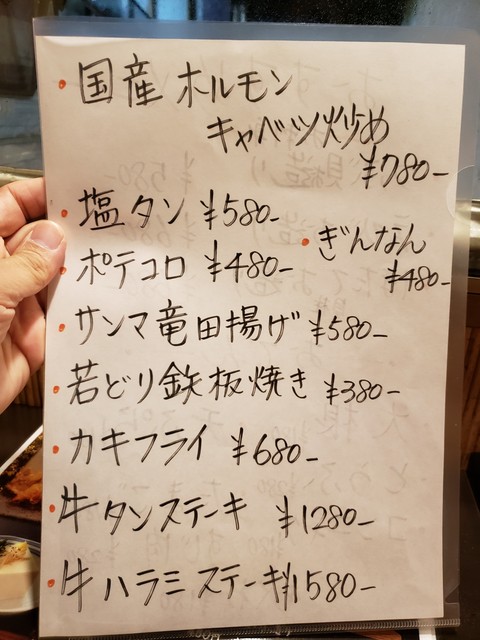 ・国産 ホルモン
キャベツ炒め
¥780-
・塩タン ¥580-
・ぎんなん
¥480-
・ポテコロ ¥480-
・サンマ竜田揚げ ¥580-
・若どり鉄板焼き ¥380-
・カキフライ ¥680-
・牛タンステーキ ¥1280-
・牛ハラミステーキ ¥1580-